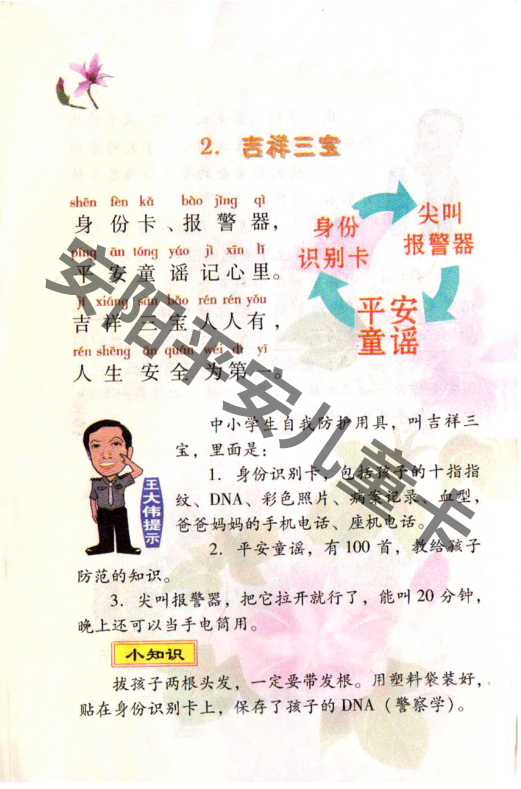 2. 吉祥三宝
shēn fèn kǎ bào jǐng qì
身份卡、报警器，
píng ān tóng yáo jì xīn lǐ
平安童谣记心里。
jí xiáng sān bǎo rén rén yǒu
吉祥三宝人人有，
rén shēng ān quán wéi dì yī
人生安全为第一。
身份
识别卡
尖叫
报警器
平安
童谣
中小学生自我防护用具，叫吉祥三
宝，里面是：
1. 身份识别卡，包括孩子的十指指
纹、DNA、彩色照片、病案记录、血型，
爸爸妈妈的手机电话、座机电话。
2. 平安童谣，有100首，教给孩子
防范的知识。
3. 尖叫报警器，把它拉开就行了，能叫20分钟，
晚上还可以当手电筒用。
王大伟提示
小知识
拔孩子两根头发，一定要带发根。用塑料袋装好，
贴在身份识别卡上，保存了孩子的DNA（警察学）。
安阳平安儿童卡